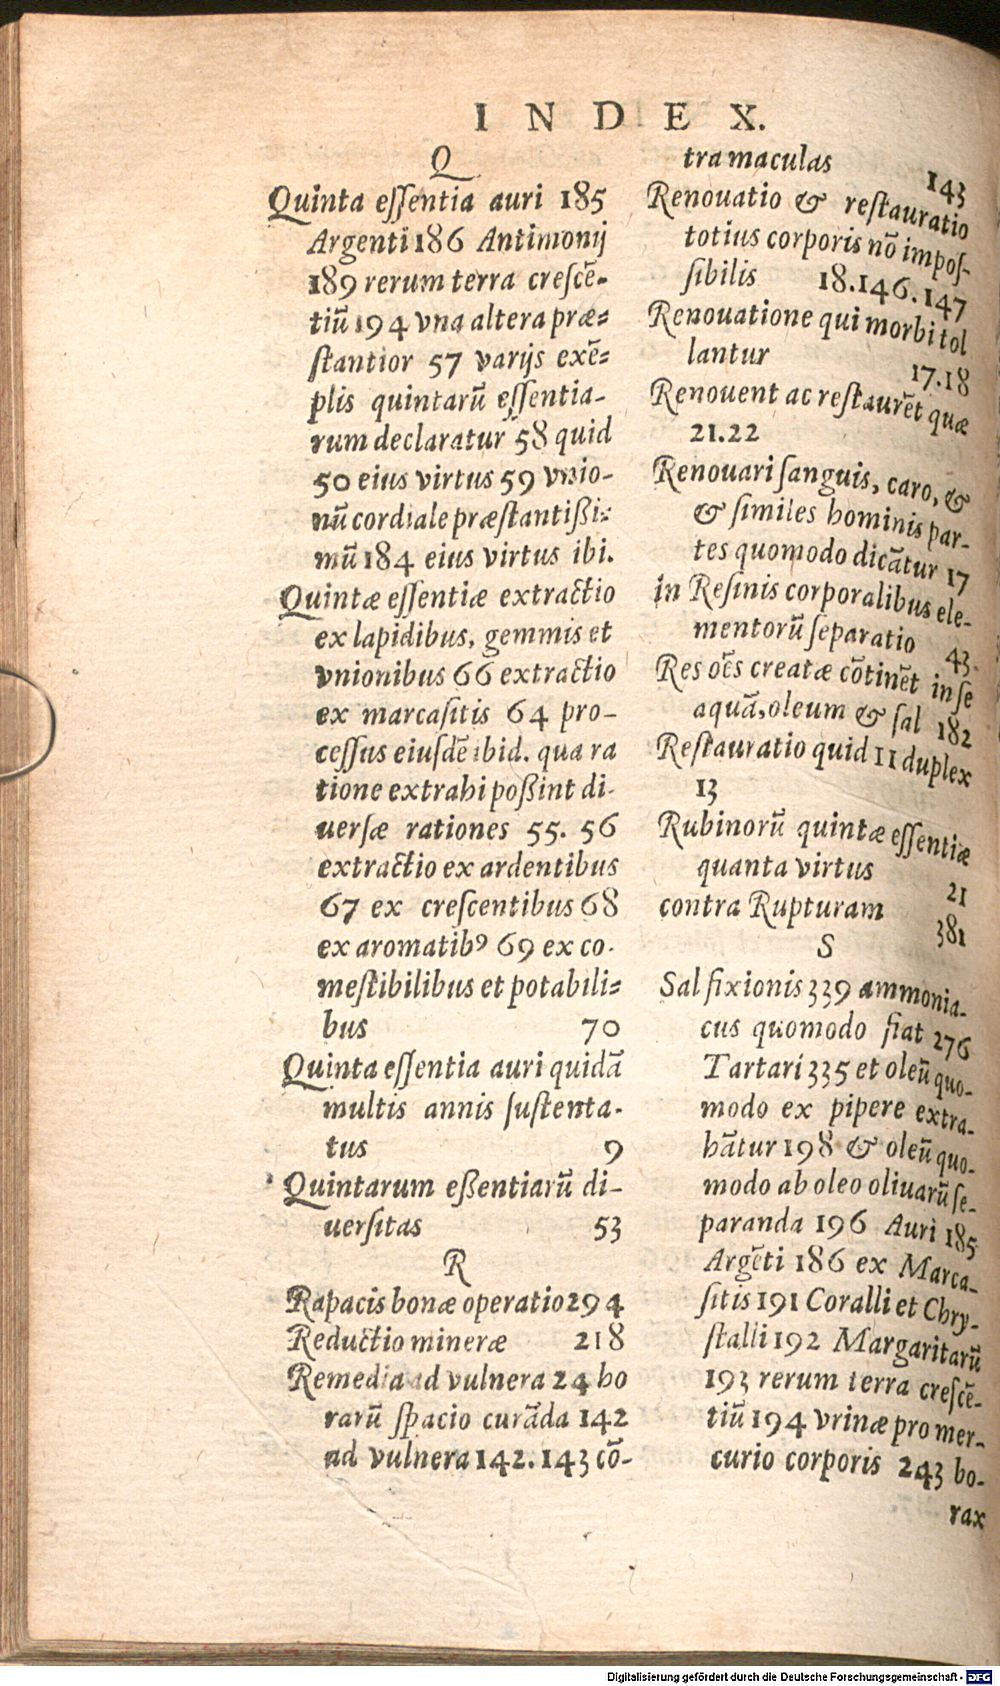 INDEX.
Q
Quinta eſſentia auri 185
Argenti 186 Antimonij
189 rerum terra creſcē-
tiū 194 vna altera præ=
ſtantior 57 varijs exē=
plis quintarū eſſentia-
rum declaratur 58 quid
50 eius virtus 59 vnio-
nū cordiale præſtantißi=
mū 184 eius virtus ibi.
Quintæ eſſentiæ extractio
ex lapidibus, gemmis et
vnionibus 66 extractio
ex marcaſitis 64 pro-
ceſſus eiuſdē ibid. qua ra
tione extrahi poßint di-
uerſæ rationes 55. 56
extractio ex ardentibus
67 ex creſcentibus 68
ex aromatibꝰ 69 ex co-
meſtibilibus et potabili=
bus 70
Quinta eſſentia auri quidā
multis annis ſuſtenta-
tus 9
Quintarum eßentiarū di-
uerſitas 53
R
Rapacis bonæ operatio 294
Reductio mineræ 218
Remedia ad vulnera 24 ho
rarū ſpacio curāda 142
ad vulnera 142. 143 cō-
tra maculas 143
Renouatio & reſtauratio
totius corporis nō impoſ-
ſibilis 18.146.147
Renouatione qui morbi tol
lantur 17.18
Renouent ac reſtaurēt quæ
21.22
Renouari ſanguis, caro, &
& ſimiles hominis par-
tes quomodo dicātur 17
in Reſinis corporalibus ele-
mentorū ſeparatio 43
Res oēs creatæ cōtinēt in ſe
aquā, oleum & ſal 182
Reſtauratio quid 11 duplex
13
Rubinorū quintæ eſſentiæ
quanta virtus 21
contra Rupturam 381
S
Sal fixionis 339 ammonia-
cus quomodo fiat 276
Tartari 335 et oleū quo-
modo ex pipere extra-
hātur 198 & oleū quo-
modo ab oleo oliuarū ſe-
paranda 196 Auri 185
Argēti 186 ex Marca-
ſitis 191 Coralli et Chry-
ſtalli 192 Margaritarū
193 rerum terra creſcē-
tiū 194 vrinæ pro mer-
curio corporis 243 bo-
rax
Digitalisierung gefördert durch die Deutsche Forschungsgemeinschaft - DFG